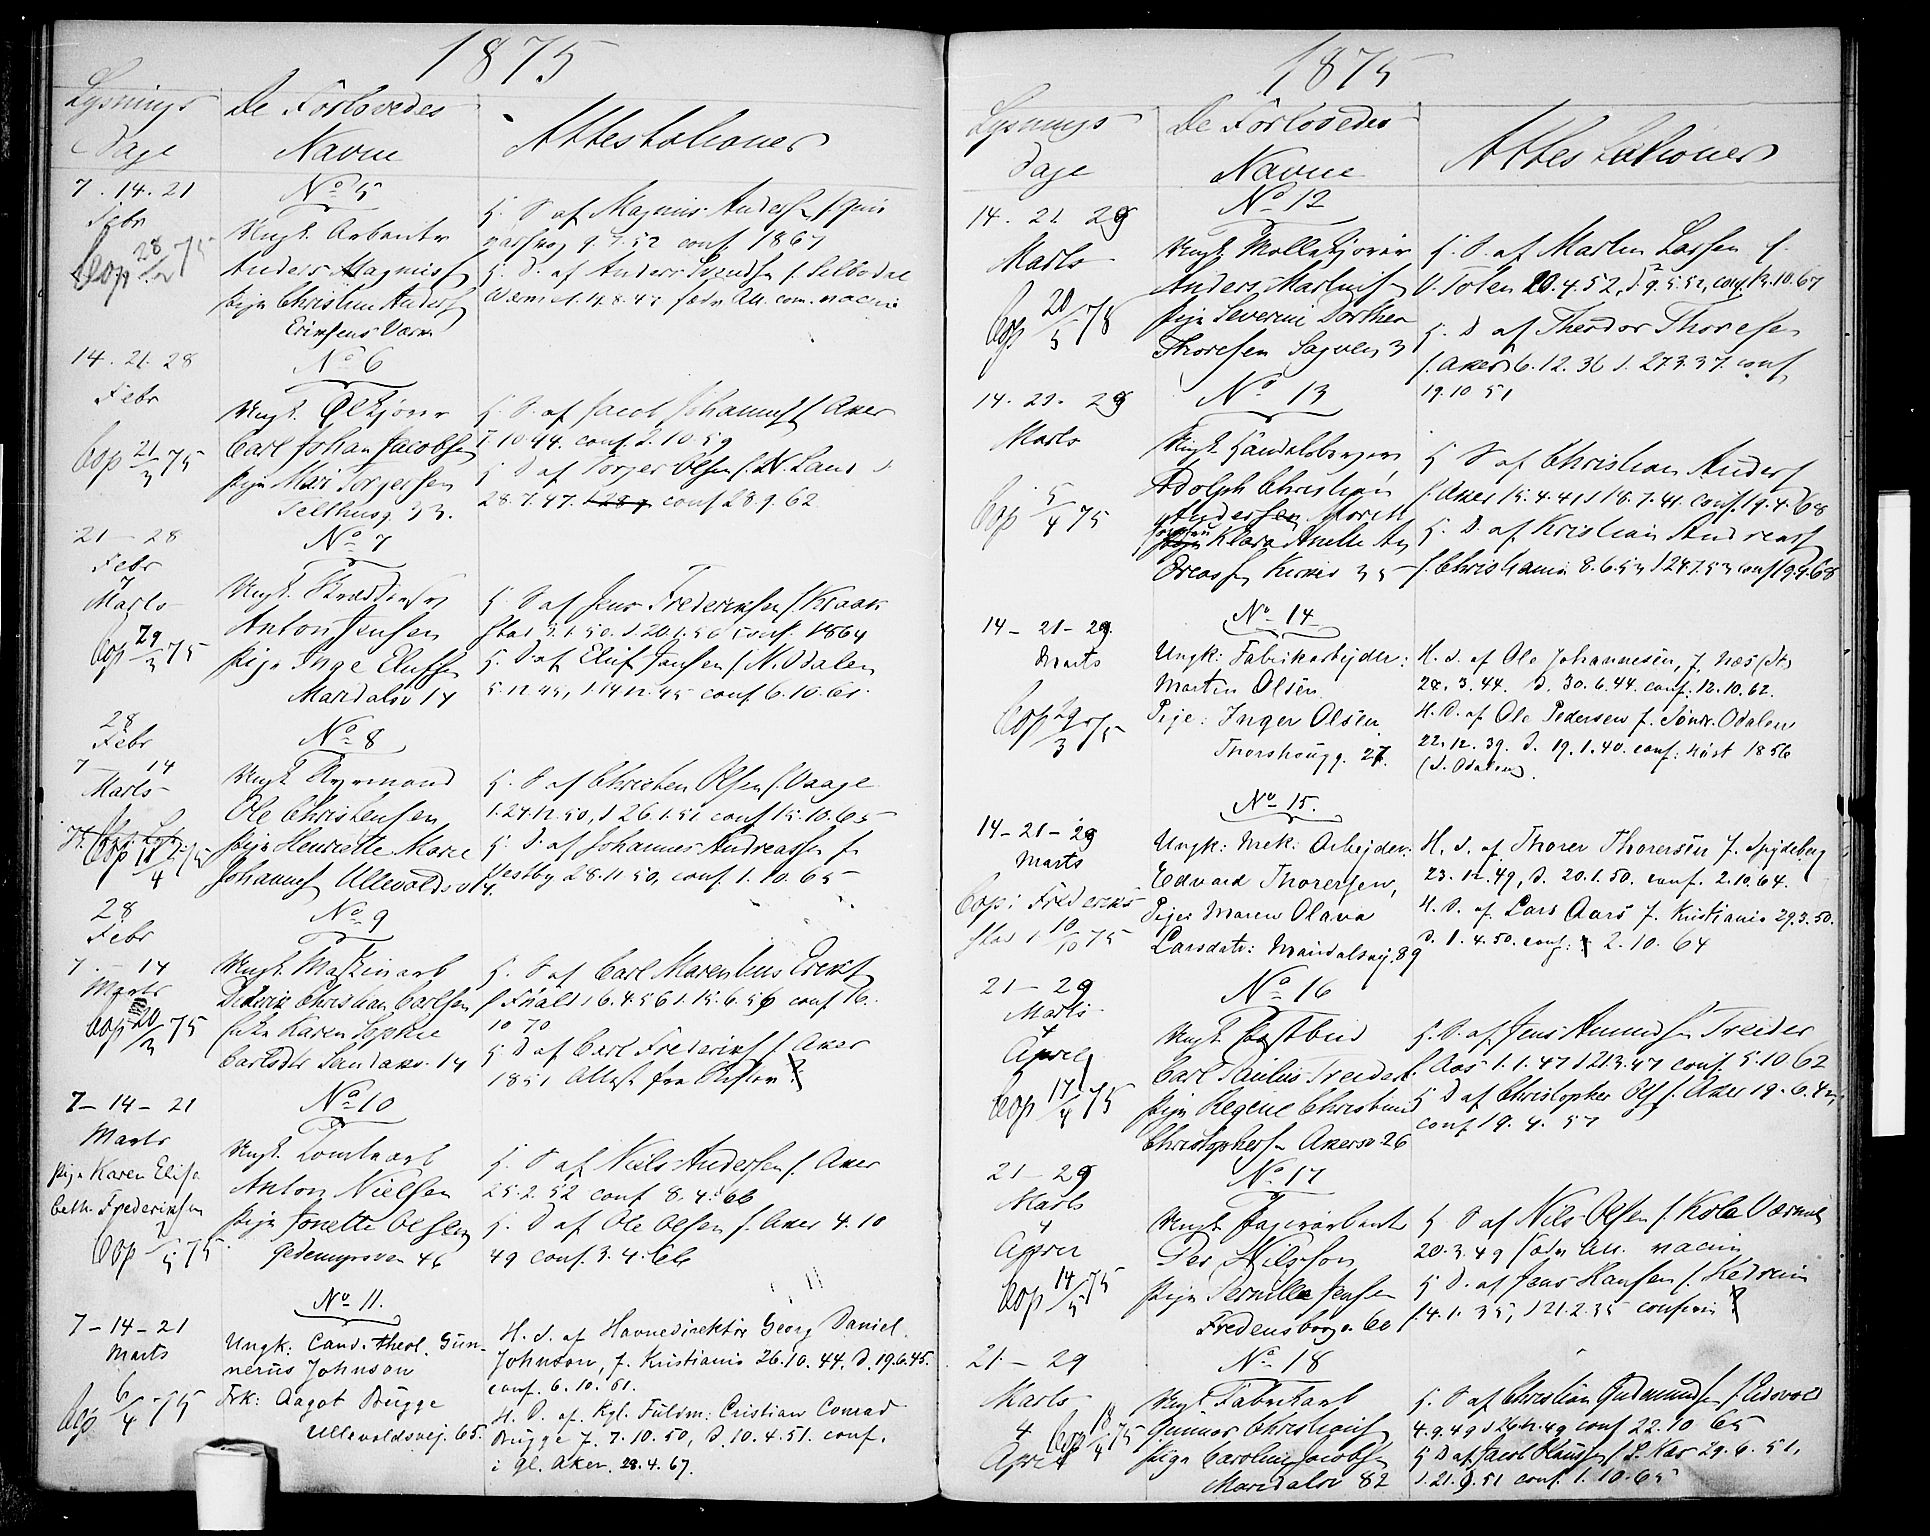 1875
Lysnings
Dage
De Forlovedes
Navne
Attestationer
7. 14. 21
Febr
Cop 28 75
No 5
Ungk. Arbeuter
Anders Magnus
Pige Christine Anders
EriksensVærk
H. S. af Magnus Anders
9.7.52 conf 1867
H. D. af Anders Svends f. Selbodal
14.8.47
14. 21. 28
Febr
Cop 21/3 75
No 6
Ungk.
Carl Johan Jacobsen
Pige Torgersen
Telthusg 33.
H. S. af Jacob Johanness f Aker
10.44. conf. 2.10.59
H D af Torger Olsen f. N. Land
28.7.47. conf 28 9. 62
21 - 28
Febr
7
Marts
Cop 29/3 75
No 7
Ungk.
Anton Jensen
Pige Inge Elufs
Maridalsv 14
H. S af Jens Frederiksen f. Kraak
stad 3.1.50. d. 20.1.50 conf. 1864
H. D af Eluf Jansen f. N. Odalen
5.12.45, d. 14.12.45 conf 6.10.61.
28
Febr
7 14
Marts
Cop 11/4 75
No 8
Ungk.
Ole Christensen
Pige Henriette Marie
Johannes Ullevoldsv 4.
H. S af Christen Olsen f. Vaage
24.12.50, d 26.1.51 conf 15.10.65
H. D. af Johannes Andreassen f.
Vestby 28.11 50, conf. 1.10.65
28
Febr
7 - 14
Marts
Cop 20/3 75
No 9
Ungk. Maskinarb
Diderik Christian Carlsen
Enke Karen Sophie
Carlsdtr Sandaker. 14
H. S af Carl
6.4.56 d. 15.6.56 conf
10 70
H D af Carl Frederiks f Aker
1851 Attest fra
7 - 14 - 21
Marts
Pige Karen Elisa
beth Frederiksen
Cop 2/5 75
No 10
Ungk. Tomtearb
Anton Nielsen
Pige Jonette Olsen
Gedemyrsven 46
H. S af Niels Andersen f. Aker
25.2.52 conf 8.4.66
H. D af Ole Olsen f. Aker 4.10
49 conf. 3.4.66
7 - 14 - 21
Marts
Cop 6/4 75
No 11.
Ungk: Cand. theol. Gun-
nerus Johnson
Frk: Aagot Bugge
Ullevoldsvej. 65.
H. S. af Havnedirektör Georg Daniel
Johnson, f. Kristiania 26.10.44. D. 19.6.45.
conf. 6.10.61.
H. D. af Kgl. Fuldm: Cristian Conrad
Bugge f. 7.10.50, D. 10.4.51. conf.
i gl. Aker. 28.4.67.
1875
Lysnings
Dage
De Forlovedes
Navne
Attestationer
14. 21. 29
Marts
Cop 20/5 75
No 12
Ungk.
Anders Martins
Pige Severine Dorthea
Thoresen Sagveien 3
H. S. af Martin Larsen f.
V. Toten 20.4.52, d 9.5.52, conf. 10.67
H. D af Theodor Thoresen
f. Aker 6.12.36 d. 27.3.37 conf
19.10 51
14. 21. 29
Marts
Cop 5/4 75
No 13
Ungk Handelsborger
Adolph Christian
Andersen
Klara Anette An
dreass 35
H S af Christian Anders
f. Aker 15.4.41 d 18.7.41 conf. 19.4.68
H. D. af Kristian Andreass
f. Christiania 8.6.53 d 24.7.53 conf 19.4.68
14 - 21 - 29.
Marts
Cop 29/3 75
No 14
Ungk: Fabrikarbejder:
Martin Olsen.
Pige: Inger Olsen.
Thorshougg. 27.
H. S. af Ole Johannesen, f. Næs
28.3.44. D. 30.6.44. conf: 12.10.62.
H. D. af Ole Pedersen f. Söndr. Odalen
22.12.39. D. 19.1.40. conf: höst 1856
(S. Odalen).
14 - 21 - 29
Marts
Cop i Frederik
stad d 10/10 75
No 15.
Ungk: Mek: Arbejder:
Edvard Thorersen,
Pige: Maren Olava
Larsdatr: Maridalsvej. 89
H. S. af Thorer Thorersen f. Spydeberg
23.12.49, D. 20.1.50. conf. 2.10.64.
H. D. af Lars Aars f. Kristiania 29.3.50.
D. 1.4.50. conf: 2.10.64
21 - 29
Marts
4
April
Cop 17/4 75
No 16
Ungk Postbud
Carl Paulus Treider
Pige Regine Christine
Christophersen Akersv 26
H. S. af Jens Amundsen Treider
f. Aas 1.1.47 d 21.3.47 conf 5.10 62
H D af Christopher Ols f. Aker 19.6.42,
conf 19.4.57
21 - 29
Marts
4
April
Cop 14/5 75
No 17
Ungk
Per Nilsson
Pige Pernille Jensen
Fredensborgv. 60
H S af Nils Olsen f Kola Værmel
20.3.49
H D. af Jens Hansen f. Hedrum
14.1.35, d 21.2.35
21 - 29
Marts
4
April
Cop 18/4 75
No 18
Ungk Fabrikarb
Gunnar Christians
Pige Caroline Jacobs
Maridalsv 82
H. S af Christian Gudmunds f. Eidsvold
4.9.49 d 26.12.49 conf 22.10 65
H D af Jacob Hanssen f. S. Næs 29.6.51.
d. 21.9.51 conf. 1.10.65